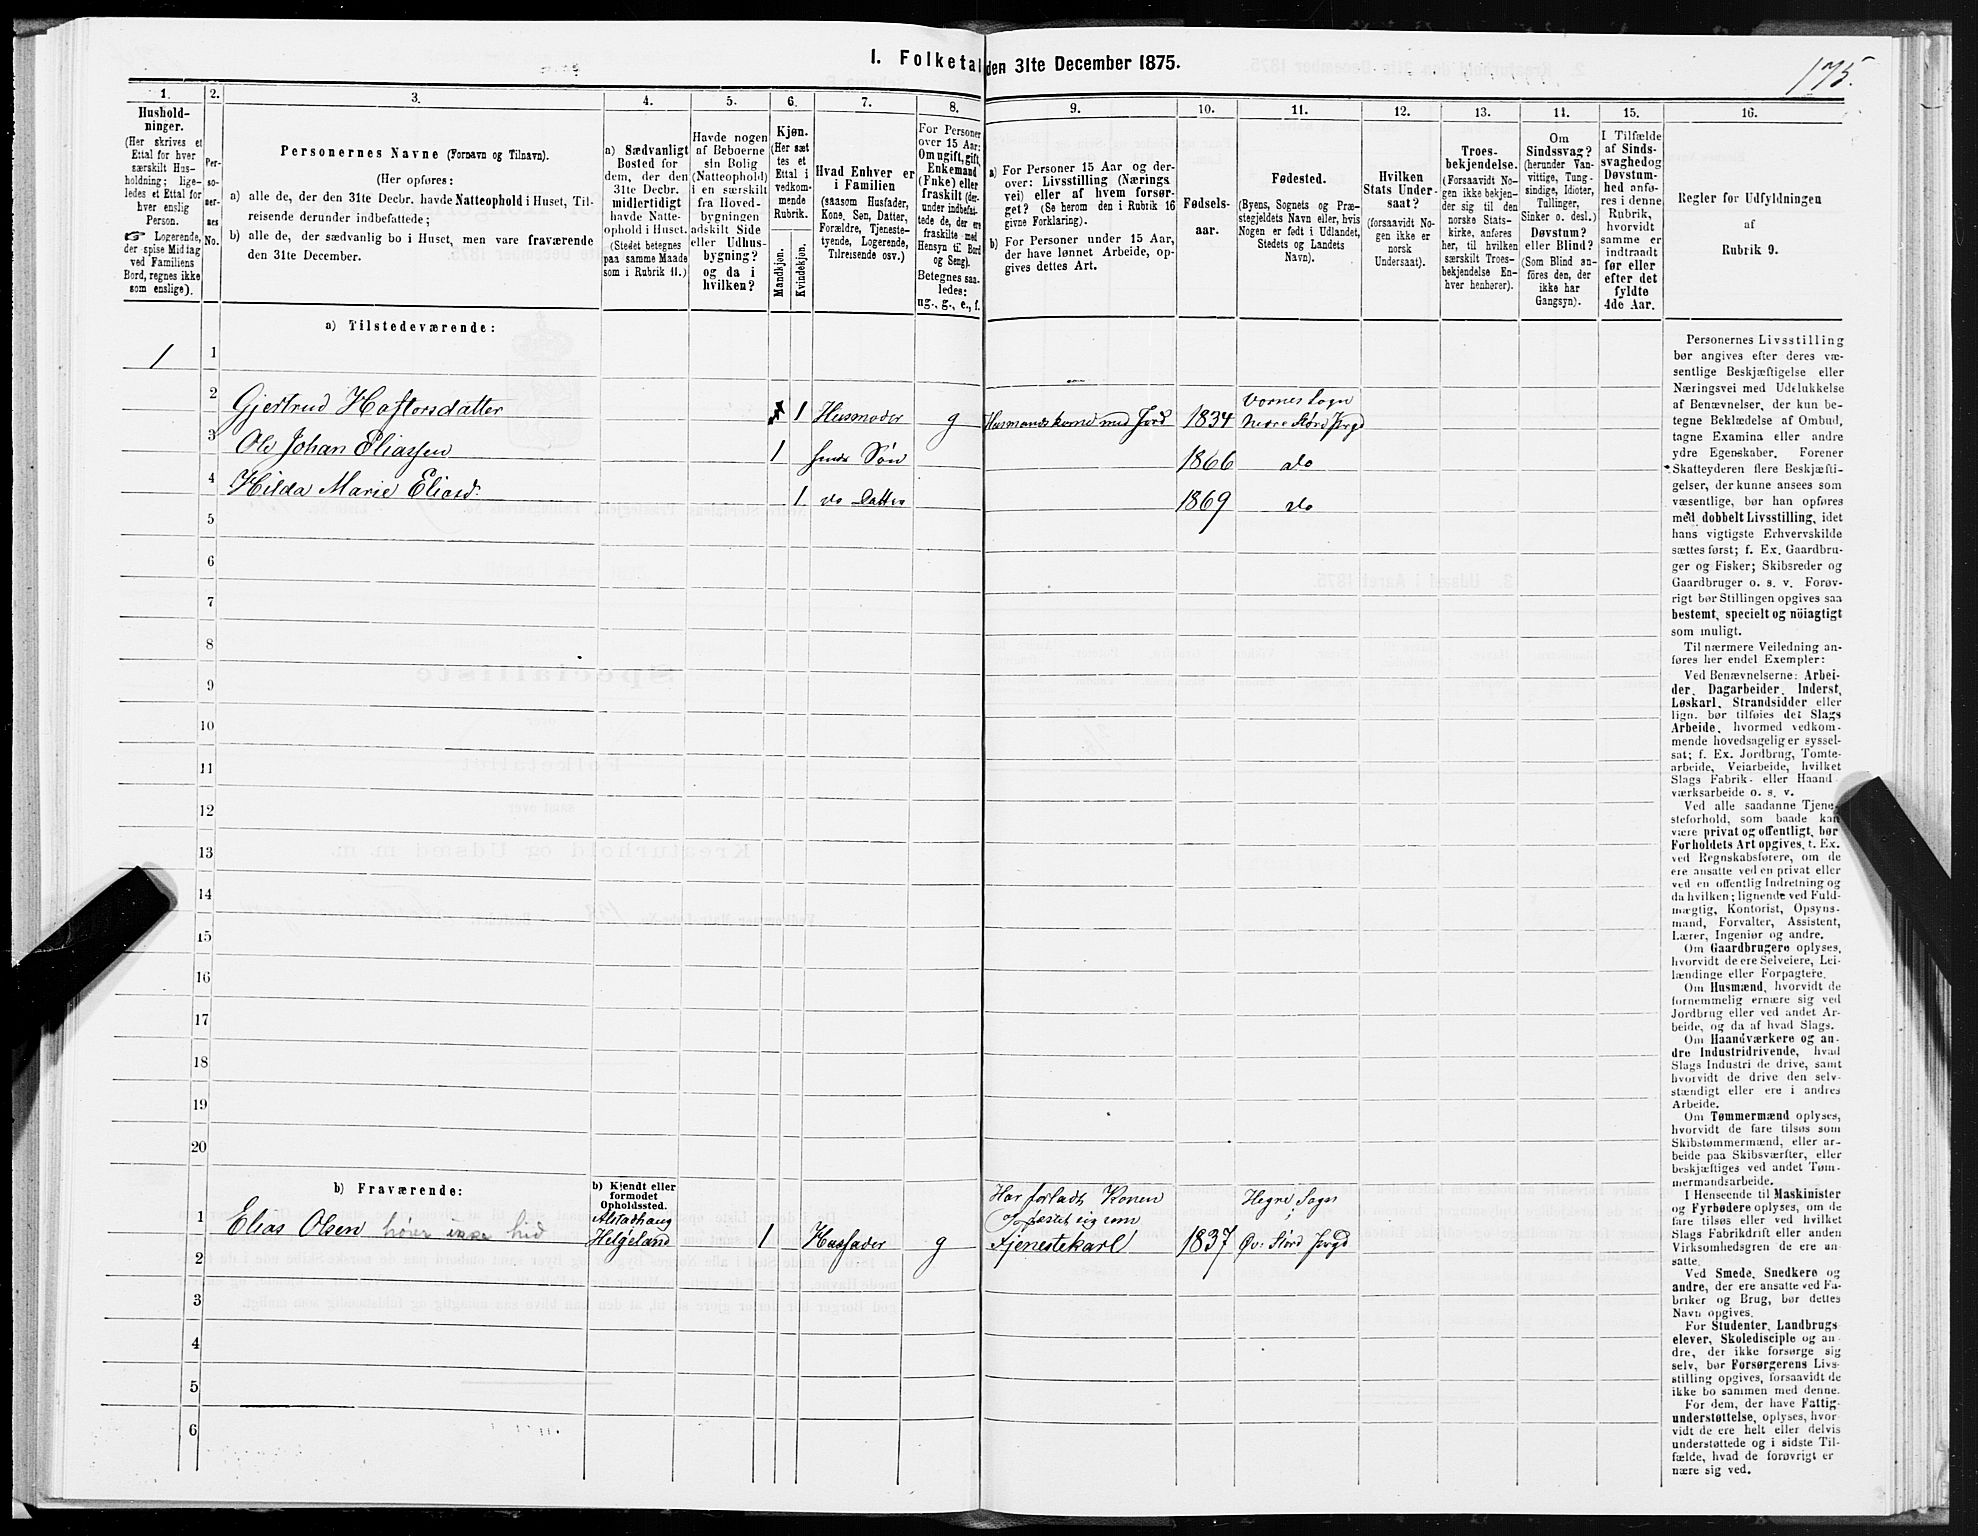 175.
I. Folketal den 31te December 1875.
1.
Hushold-
ninger.
(Her skrives et
Ettal for hver
særskilt Hus-
holdning; lige-
ledes et Ettal for
hver enslig
Person.
☞ Logerende,
der spise Middag
ved Familiens
Bord, regnes ikke
som enslige).
2.
Per-
so-
ner-
nes
No.
3.
Personernes Navne (Fornavn og Tilnavn).
(Her opføres:
a) alle de, der den 31te Decbr. havde Natteophold i Huset, Til-
reisende derunder indbefattede;
b) alle de, der sædvanlig bo i Huset, men vare fraværende
den 31te December.
4.
a) Sædvanligt
Bosted for
dem, der den
31te Decbr.
midlertidigt
havde Natte-
ophold i Huset.
(Stedet betegnes
paa samme Maade
som i Rubrik 11.)
5.
Havde nogen
af Beboerne
sin Bolig
(Natteophold)
i en særskilt
fra Hoved-
bygningen
adskilt Side
eller Udhus-
bygning?
og da i
hvilken?
6.
Kjøn.
(Her sæt
tes et
Ettal i
vedkom-
mende
Rubrik.
Mandkjøn.
Kvindekjøn.
7.
Hvad Enhver er
i Familien
(saasom Husfader,
Kone, Søn, Datter,
Forældre, Tjeneste-
tyende, Logerende,
Tilreisende osv.)
8.
For Personer
over 15 Aar:
Om ugift, gift,
Enkemand
(Enke) eller
fraskilt (der-
under indbefat-
tede de, der ere
fraskilte med
Hensyn til Bord
og Seng).
Betegnes saa-
ledes:
ug., g., e., f.
9.
a) For Personer 15 Aar og der-
over: Livsstilling (Nærings-
vei) eller af hvem forsør-
get? (Se herom den i Rubrik 16
givne Forklaring).
b) For Personer under 15 Aar,
der have lønnet Arbeide, op-
gives dettes Art.
10.
Fødsels-
aar.
11.
Fødested.
(Byens, Sognets og Præ-
stegjeldets Navn eller, hvis
Nogen er født i Udlandet,
Stedets og Landets
Navn).
12.
Hvilken
Stats Under-
saat?
(forsaavidt No-
gen ikke er
norsk
Undersaat).
13.
Troes-
bekjendelse.
(Forsaavidt No-
gen ikke bekjen-
der sig til den
norske Stats-
kirke, anføres
her, til hvilken
særskilt Troes-
bekjendelse En-
hver henhører).
14.
Om
Sindssvag?
(herunder Van-
vittige, Tung-
sindige, Idioter,
Tullinger,
Sinker o. desl.)
Døvstum?
eller Blind?
(Som Blind an-
føres den, der
ikke har
Gangsyn).
15.
I Tilfælde
af Sinds-
svaghed og
Døvstum-
hed anfø-
res i denne
Rubrik,
hvorvidt
samme er
indtraadt
før eller
efter det
fyldte
4de Aar.
16.
Regler for Udfyldningen
af
Rubrik 9.
a) Tilstedeværende:
1 1
2 Gjertrud Haftorsdatter 1 Husmoder g Husmandskone med Jord 1834 Vornes Sogn
Nedre Størd Prgd
3 Ole Johan Eliassen 1 Søn 1866 do
4 Hilda Marie Eliasd. 1 do Datter 1869 do
5
6
7
8
9
10
11
12
13
14
15
16
17
18
19
20
b) Fraværende:
b) Kjendt eller
formodet
Opholdssted.
1 Elias Olsen hører ikke hid Alstadhaug
Helgeland 1 Husfader g Har forladt Konen
og fæstet sig som
Tjenestekarl 1837 Hegre Sogn
Øv. Størd Prgd
2
3
4
5
6
Personernes Livsstilling
bør angives efter deres væ-
sentlige Beskjæftigelse eller
Næringsvei med Udelukkelse
af Benævnelser, der kun be-
tegne Beklædelse af Ombud,
tagne Examina eller andre
ydre Egenskaber. Forener
Skatteyderen flere Beskjæfti-
gelser, der kunne ansees som
væsentlige, bør han opføres
med dobbelt Livsstilling, idet
hans vigtigste Erhvervskilde
sættes først; f. Ex. Gaardbru-
ger og Fisker; Skibsreder og
Gaardbruger o. s. v. Forøv-
rigt bør Stillingen opgives saa
bestemt, specielt og nöiagtigt
som muligt.
Til nærmere Veiledning an-
føres her endel Exempler:
Ved Benævnelserne: Arbei-
der, Dagarbeider, Inderst,
Løskarl, Strandsidder eller
lign. bør tilføies det Slags
Arbeide, hvormed vedkom-
mende hovedsagelig er syssel-
sat; f. Ex. Jordbrug, Tomte-
arbeide, Veiarbeide, hvilket
Slags Fabrik- eller Haand-
værksarbeide o. s. v.
Ved alle saadanne Tjene-
steforhold, som baade kan
være privat og offentligt, bør
Forholdets Art opgives, t. Ex.
ved Regnskabsførere, om de
ere ansatte ved en privat eller
ved en offentlig Indretning og
da hvilken; lignende ved Fuld-
mægtig, Kontorist, Opsyns-
mand, Forvalter, Assistent,
Lærer, Ingeniør og andre.
Om Gaardbrugere oplyses,
hvorvidt de ere Selveiere, Lei-
lændinge eller Forpagtere.
Om Husmænd, hvorvidt de
fornemmelig ernære sig ved
Jordbrug eller ved andet Ar-
beide, og da af hvad Slags.
Om Haandværkere og an-
dre Industridrivende, hvad
Slags Industri de drive, samt
hvorvidt de drive den selv-
stændigt eller ere i andres
Arbeide.
Om Tømmermænd oplyses,
hvorvidt de fare tilsøs som
Skibstømmermænd, eller ar-
beide paa Skibsværfter, eller
beskjæftiges ved andet Tøm-
mermandsarbeide.
I Henseende til Maskinister
og Fyrbødere oplyses, om de
fare tilsøs eller ved hvilket
Slags Fabrikdrift eller anden
Virksomhedsgren de ere an-
satte.
Ved Smede, Snedkere og
andre, der ere ansatte ved Fa-
briker og Brug, bør dettes
Navn opgives.
For Studenter, Landbrugs-
elever, Skoledisciple og an-
dre, der ikke forsørge sig
selv, bør Forsørgerens Livs-
stilling opgives, forsaavidt de
ikke bo sammen med denne.
For dem, der have Fattig-
understøttelse, oplyses, hvor-
vidt de ere helt eller delvis
understøttede og i sidste Til-
fælde, hvad de forøvrigt er
nære sig ved.